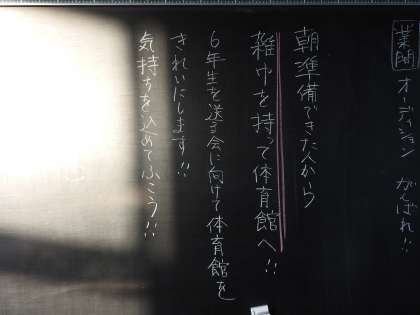 業間 オーディション がんばれ!!
朝準備できた人から
雑巾を持って体育館へ!!
6年生を送る会に向けて体育館を
きれいにします!!
気持ちを込めてふこう!!